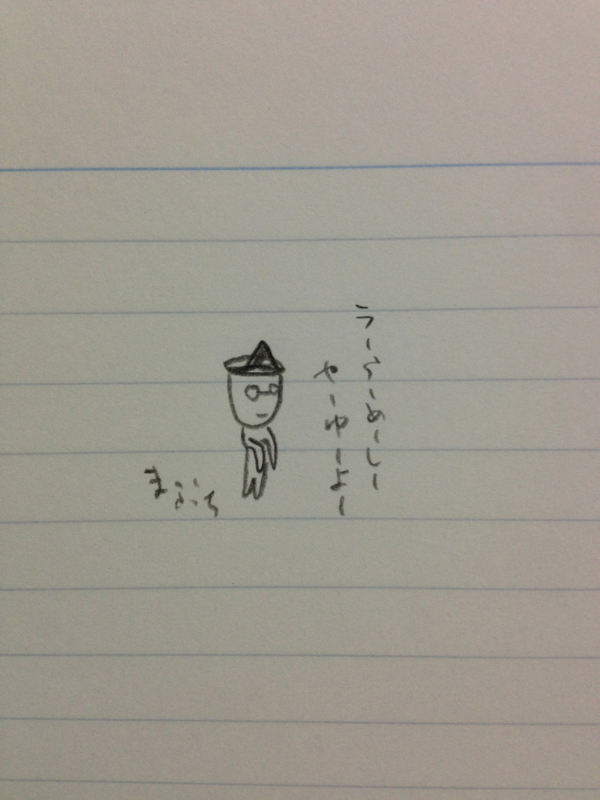 うーらーめーしー
やーゆーよー
まぶち